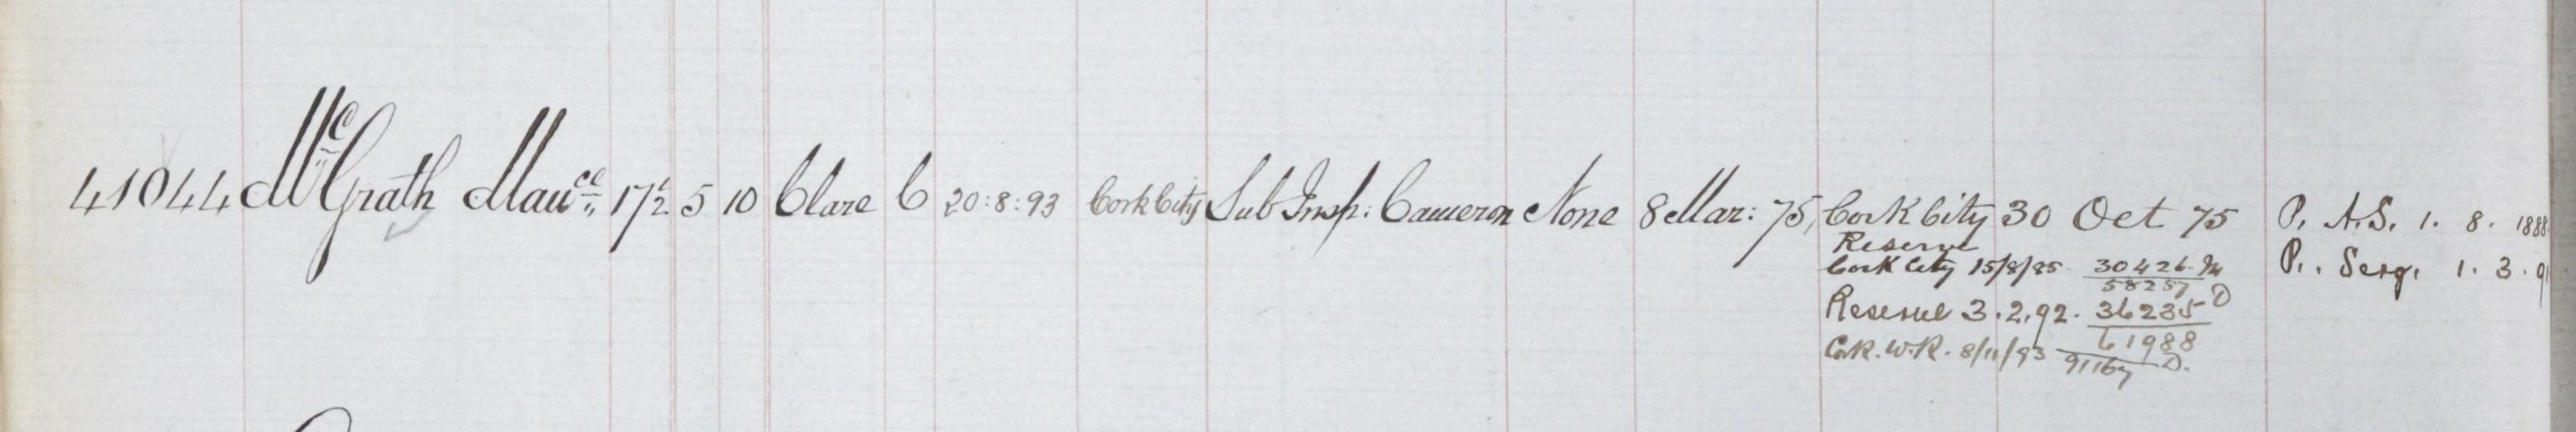 41044 McGrath Maucc 17½ 5 10 Clare C 20:8:93 Cork City Sub Insp: Cameron None 8 Mar: 75, Cork City 30 Oct 75 P. A.S. 1. 8. 1888
Reserve
Cork City 15/8/85 30426 M P.. Serg. 1. 3. 91
58257
Reserve 3.2.92. 36235 D
61988
Cork. W.R. 8/11/93 D.